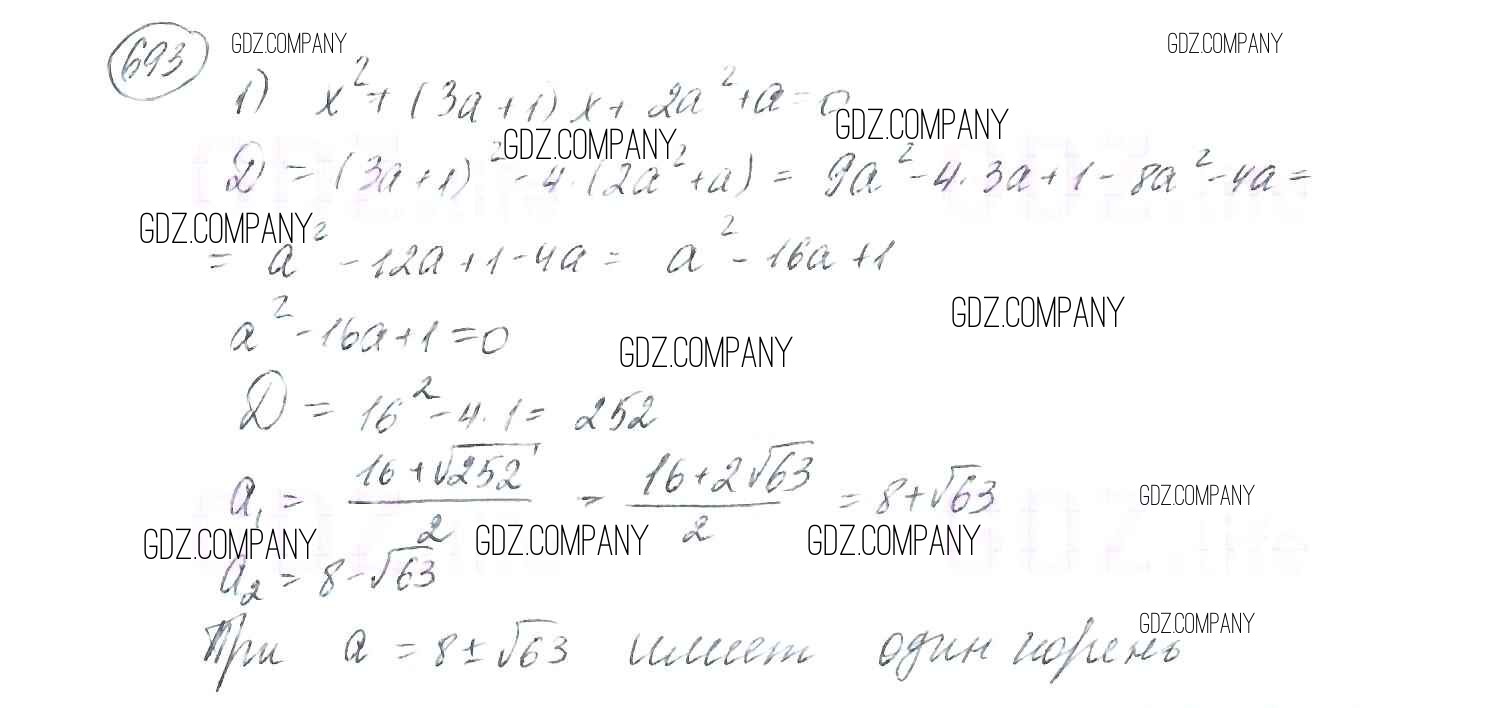 693 GDZ.COMPANY GDZ.COMPANY
1) x² + (3a + 1) x + 2a² + a = 0
GDZ.COMPANY GDZ.COMPANY
Д = (3a + 1)² - 4 · (2a² + a) = 9a² - 4 · 3a + 1 - 8a² - 4a =
GDZ.COMPANY
= a² - 12a + 1 - 4a = a² - 16a + 1
GDZ.COMPANY
a² - 16a + 1 = 0
GDZ.COMPANY
Д = 16² - 4 · 1 = 252
a₁ = (16 + √252)/2 = (16 + 2√63)/2 = 8 + √63
GDZ.COMPANY
GDZ.COMPANY GDZ.COMPANY GDZ.COMPANY
a₂ = 8 - √63
GDZ.COMPANY
При a = 8 ± √63 имеет один корень